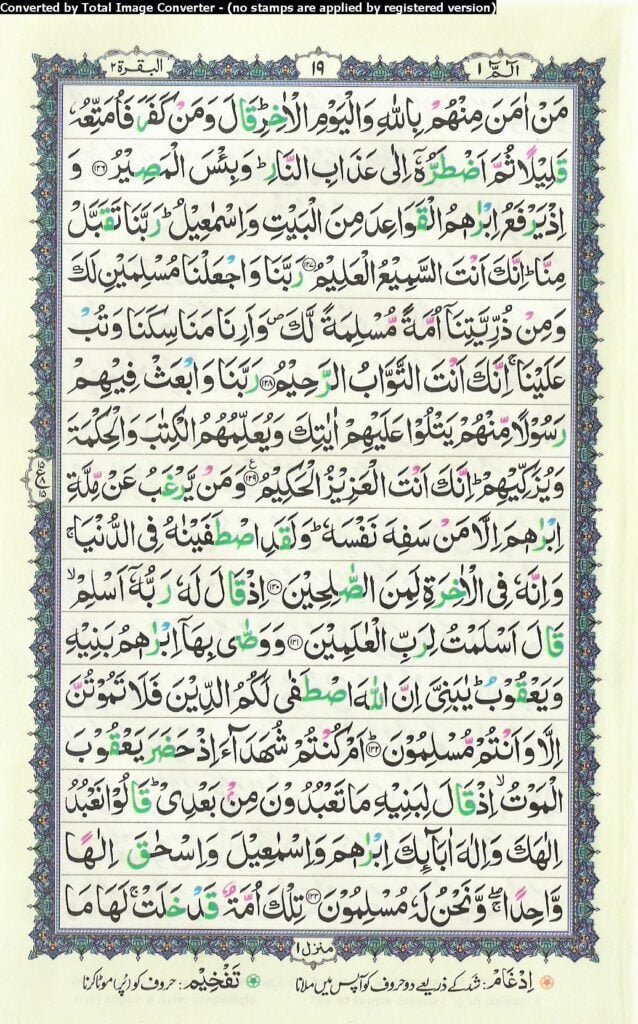 Converted by Total Image Converter - (no stamps are applied by registered version)
الٓمّٓ ١
١٩
البقرة ٢
مَنْ اٰمَنَ مِنْهُمْ بِاللّٰهِ وَالْیَوْمِ الْاٰخِرِ ؕ قَالَ وَمَنْ كَفَرَ فَاُمَتِّعُهٗ
قَلِیْلًا ثُمَّ اَضْطَرُّهٗۤ اِلٰی عَذَابِ النَّارِ ؕ وَبِئْسَ الْمَصِیْرُ ﴿۱۲۶﴾ وَ
اِذْ یَرْفَعُ اِبْرٰهٖمُ الْقَوَاعِدَ مِنَ الْبَیْتِ وَاِسْمٰعِیْلُ ؕ رَبَّنَا تَقَبَّلْ
مِنَّا ؕ اِنَّكَ اَنْتَ السَّمِیْعُ الْعَلِیْمُ ﴿۱۲۷﴾ رَبَّنَا وَاجْعَلْنَا مُسْلِمَیْنِ لَكَ
وَمِنْ ذُرِّیَّتِنَاۤ اُمَّةً مُّسْلِمَةً لَّكَ ۪ وَاَرِنَا مَنَاسِكَنَا وَتُبْ
عَلَیْنَا ۚ اِنَّكَ اَنْتَ التَّوَّابُ الرَّحِیْمُ ﴿۱۲۸﴾ رَبَّنَا وَابْعَثْ فِیْهِمْ
رَسُوْلًا مِّنْهُمْ یَتْلُوْا عَلَیْهِمْ اٰیٰتِكَ وَیُعَلِّمُهُمُ الْكِتٰبَ وَالْحِكْمَةَ
وَیُزَكِّیْهِمْ ؕ اِنَّكَ اَنْتَ الْعَزِیْزُ الْحَكِیْمُ ﴿۱۲۹﴾ ع وَمَنْ یَّرْغَبُ عَنْ مِّلَّةِ
اِبْرٰهٖمَ اِلَّا مَنْ سَفِهَ نَفْسَهٗ ؕ وَلَقَدِ اصْطَفَیْنٰهُ فِی الدُّنْیَا ۚ
وَاِنَّهٗ فِی الْاٰخِرَةِ لَمِنَ الصّٰلِحِیْنَ ﴿۱۳۰﴾ اِذْ قَالَ لَهٗ رَبُّهٗۤ اَسْلِمْ ۙ
قَالَ اَسْلَمْتُ لِرَبِّ الْعٰلَمِیْنَ ﴿۱۳۱﴾ وَوَصّٰی بِهَاۤ اِبْرٰهٖمُ بَنِیْهِ
وَیَعْقُوْبُ ؕ یٰبَنِیَّ اِنَّ اللّٰهَ اصْطَفٰی لَكُمُ الدِّیْنَ فَلَا تَمُوْتُنَّ
اِلَّا وَاَنْتُمْ مُّسْلِمُوْنَ ﴿۱۳۲﴾ ؕ اَمْ كُنْتُمْ شُهَدَآءَ اِذْ حَضَرَ یَعْقُوْبَ
الْمَوْتُ ۙ اِذْ قَالَ لِبَنِیْهِ مَا تَعْبُدُوْنَ مِنْۢ بَعْدِیْ ؕ قَالُوْا نَعْبُدُ
اِلٰهَكَ وَاِلٰهَ اٰبَآئِكَ اِبْرٰهٖمَ وَاِسْمٰعِیْلَ وَاِسْحٰقَ اِلٰهًا
وَّاحِدًا ۖۚ وَّنَحْنُ لَهٗ مُسْلِمُوْنَ ﴿۱۳۳﴾ تِلْكَ اُمَّةٌ قَدْ خَلَتْ ۚ لَهَا مَا
منزل ١
اِدْغَام: شد کے ذریعے دو حروف کو آپس میں ملانا تَفْخِیْم: حروف کو (پُر) موٹا کرنا